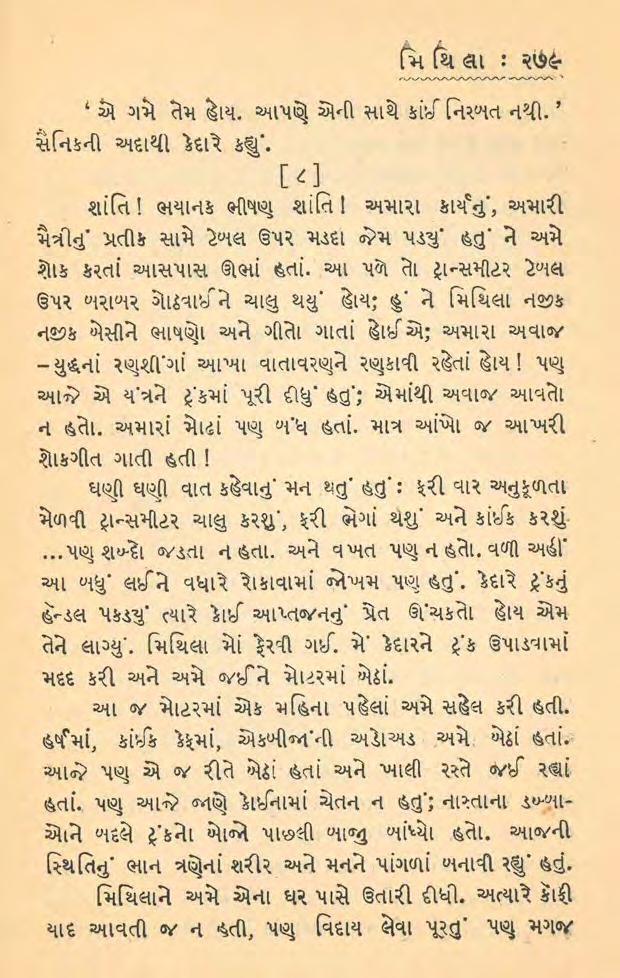 મિથિલા : ૨૭૯
‘ એ ગમે તેમ હોય. આપણે એની સાથે કાંઈ નિસ્બત નથી. ’
સૈનિકની અદાથી કેદારે કહ્યું.
[૮]
શાંતિ! ભયાનક ભીષણ શાંતિ! અમારા કાર્યનું, અમારી
મૈત્રીનું પ્રતીક સામે ટેબલ ઉપર મડદા જેમ પડયું હતું ને અમે
શોક કરતાં આસપાસ ઊભાં હતાં. આ પળે તો ટ્રાન્સમીટર ટેબલ
ઉપર બરાબર ગોઠવાઈને ચાલુ થયું હોય; હું ને મિથિલા નજીક
નજીક બેસીને ભાષણો અને ગીતો ગાતાં હોઈએ; અમારા અવાજ
–યુદ્ધનાં રણશીંગાં આખા વાતાવરણને રણકાવી રહેતાં હોય! પણ
આજે એ યંત્રને ટ્રંકમાં પૂરી દીધું હતું; એમાંથી અવાજ આવતો
ન હતો. અમારાં મોઢાં પણ બંધ હતાં. માત્ર આંખો જ આખરી
શોકગીત ગાતી હતી!
ઘણી ઘણી વાત કહેવાનું મન થતું હતું : ફરી વાર અનુકૂળતા
મેળવી ટ્રાન્સમીટર ચાલુ કરશું, ફરી ભેગાં થશું અને કાંઈક કરશું
...પણ શબ્દો જડતા ન હતા. અને વખત પણ ન હતો. વળી અહીં
આ બધું લઈને વધારે રોકાવામાં જોખમ પણ હતું. કેદારે ટ્રંકનું
હૅન્ડલ પકડયું ત્યારે કોઈ આપ્તજનનું પ્રેત ઊંચકતો હોય એમ
તેને લાગ્યું. મિથિલા મોં ફેરવી ગઈ. મેં કેદારને ટ્રંક ઉપાડવામાં
મદદ કરી અને અમે જઈને મોટરમાં બેઠાં.
આ જ મોટરમાં એક મહિના પહેલાં અમે સહેલ કરી હતી.
હર્ષમાં, કાંઈક કેફમાં, એકબીજાંની અડોઅડ અમે બેઠાં હતાં.
આજે પણ એ જ રીતે બેઠાં હતાં અને ખાલી રસ્તે જઈ રહ્યાં
હતાં. પણ આજે જાણે કોઈનામાં ચેતન ન હતું; નાસ્તાના ડબ્બા-
ઓને બદલે ટ્રંકનો બોજો પાછલી બાજુ બાંધ્યો હતો. આજની
સ્થિતિનું ભાન ત્રણેનાં શરીર અને મનને પાંગળાં બનાવી રહ્યું હતું.
મિથિલાને અમે એના ઘર પાસે ઉતારી દીધી. અત્યારે કૉફી
યાદ આવતી જ ન હતી, પણ વિદાય લેવા પૂરતું પણ મગજ